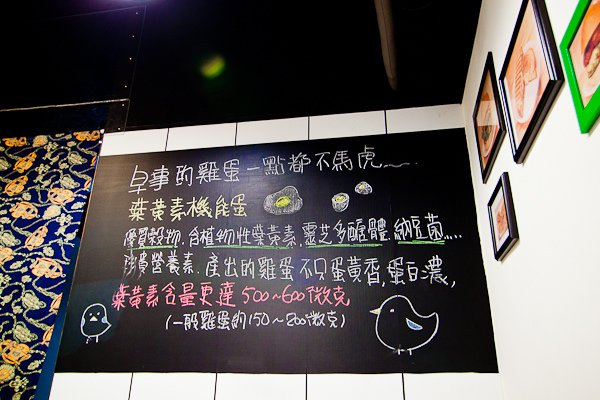 早事的雞蛋一點都不馬虎
葉黃素機能蛋
優質穀物.含植物性葉黃素.靈芝多醣體.納豆菌....
強貴營養素.產出的雞蛋不只蛋黃香,蛋白濃,
葉黃素含量更達500~600微克
(一般雞蛋約150~200微克)